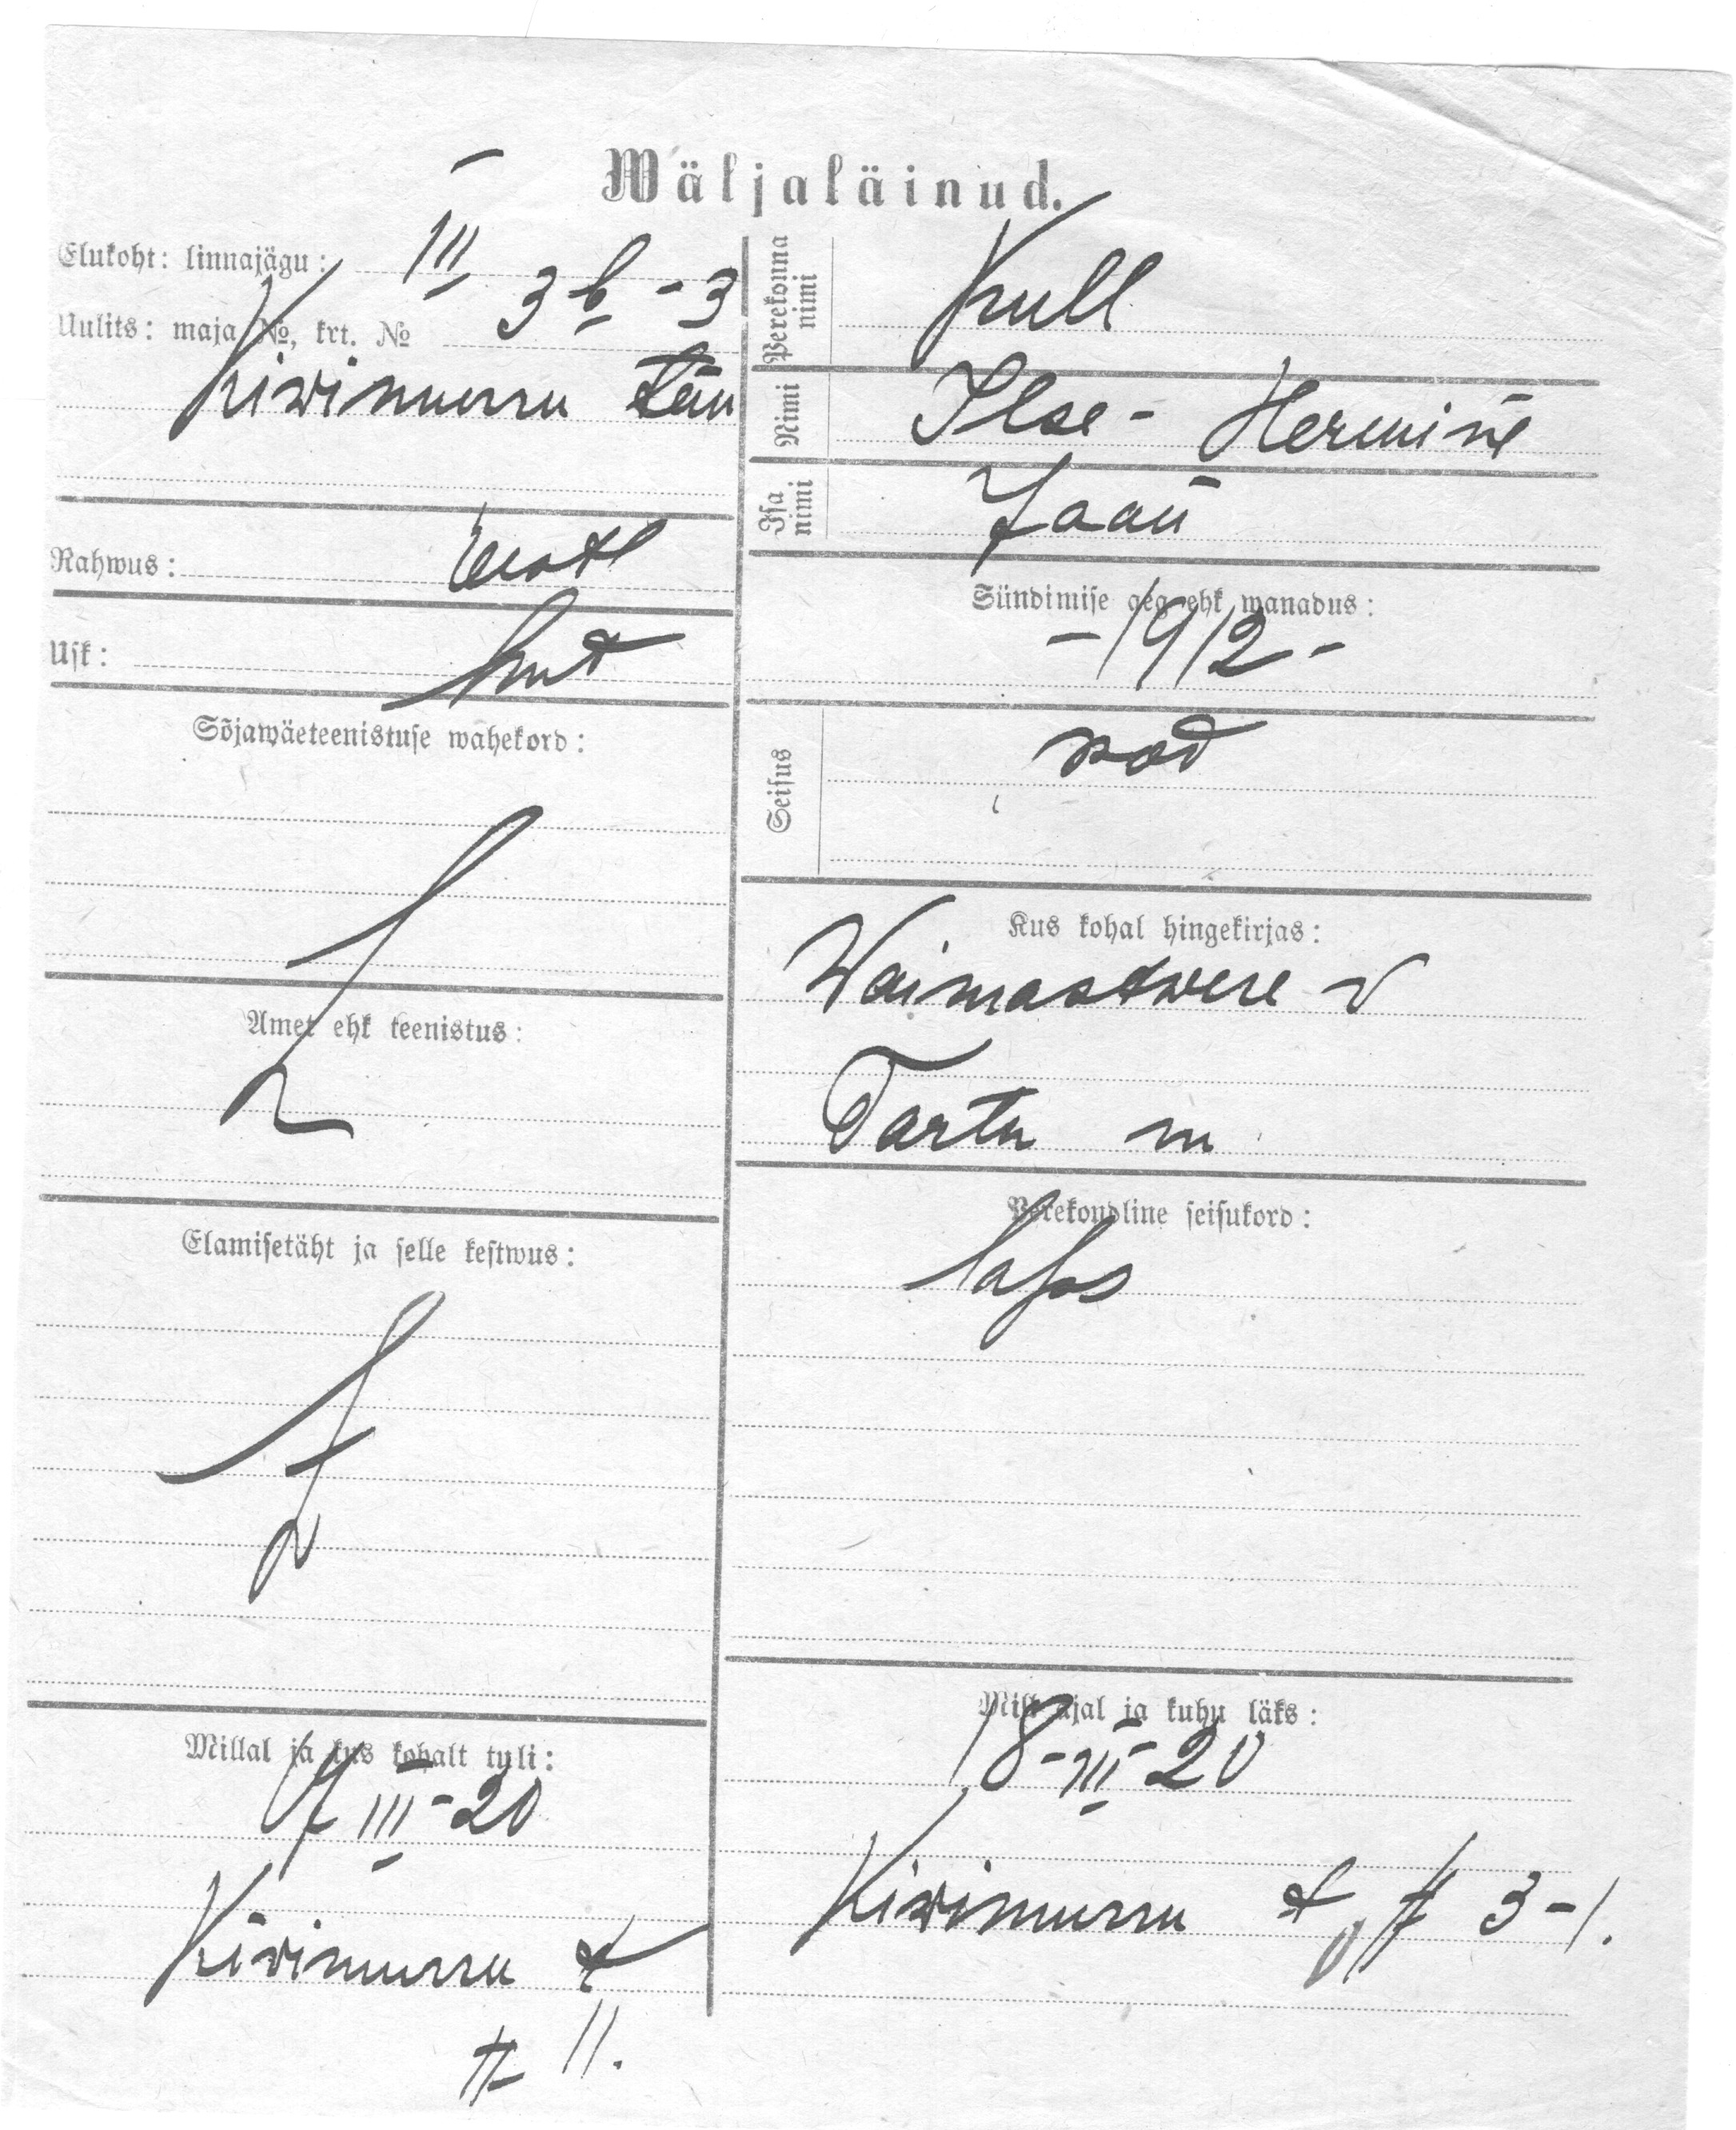 Wäljaläinud.
Elukoht: linnajägu: III
Uulits: maja №, krt. № 3 b - 3
Kiwimurru tän
Rahwus: eest
Usk: lut
Sõjawäeteenistuse wahekord:
Amet ehk teenistus:
Elamisetäht ja selle kestwus:
Millal ja kus kohalt tuli:
III - 20
Kiwimurru t
# 11.
Perekonna nimi Kull
Nimi Ilse - Hermine
Isa nimi Jaan
Sündimise aeg ehk wanadus:
- 1912 -
Seisus
Kus kohal hingekirjas:
Waimastwere v
Tartu m
Perekondline seisukord:
laps
Mill ajal ja kuhu läks:
18 - III - 20
Kiwimurru t # 3 - 1.